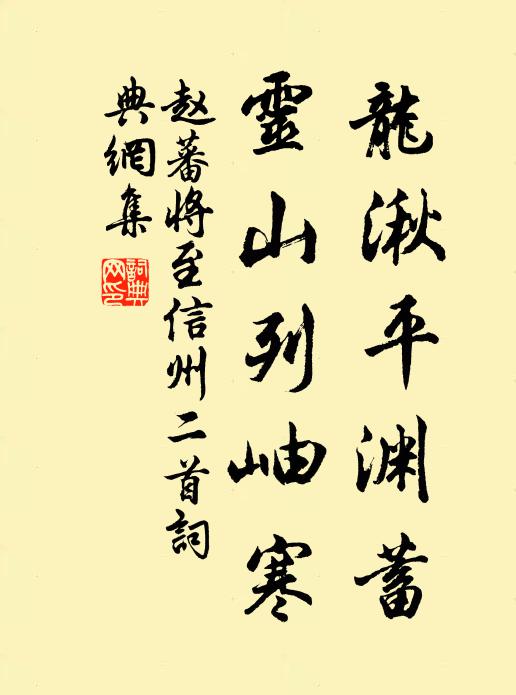 龍湫平渊蓄
靈山列岫寒
赵蕃将至信州二首詞
典網集
詞典网印